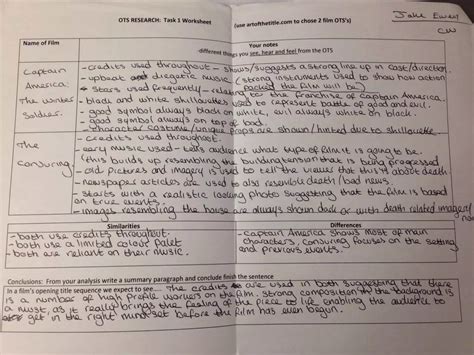 OTS RESEARCH: Task 1 Worksheet
(use artofthetitle.com to chose 2 film OTS's)
Jake Ewen
CW
Name of Film
Your notes
different things you see, hear and feel from the OTS
Captain America: The Winter Soldier.
- credits used throughout - shows/suggests a strong line up on cast/direction.
- upbeat and diegetic music (strong instruments used to show how action
packed the film will be)
- stars used frequently - relating to the franchise of Captain America.
- black and white shillouettes used to represent battle of good and evil.
- good symbol always black on white, evil always white on black.
- good symbol always on top of bad.
- character costume/unique props are shown/hinted due to shillouette.
The Conjuring.
- credits used throughout.
- eary music used - tells audience what type of film it is going to be.
(this builds up resembling the building tension that is being progressed
- old pictures and imagery is used to tell the viewer that this is about death.
- newspaper articles are used to also resemble death/bad news.
- starts with a realistic looking photo suggesting that the film is based
on true events.
- images resembling the house are always shown dark or with death related imagery
Similarities
Differences
- both use credits throughout.
- both use a limited colour palet
- both are reliant on their music.
- Captain America shows most of main
characters, conjuring focuses on the setting
and previous events.
Conclusions: From your analysis write a summary paragraph and conclude finish the sentence
In a film's opening title sequence we expect to see... The credits are used in both suggesting that there
is a number of high profile workers on the film. Strong composition in the background is
a must, as it really brings the feeling of the piece to life enabling the audience to
get in the right mind set before the film has even begun.